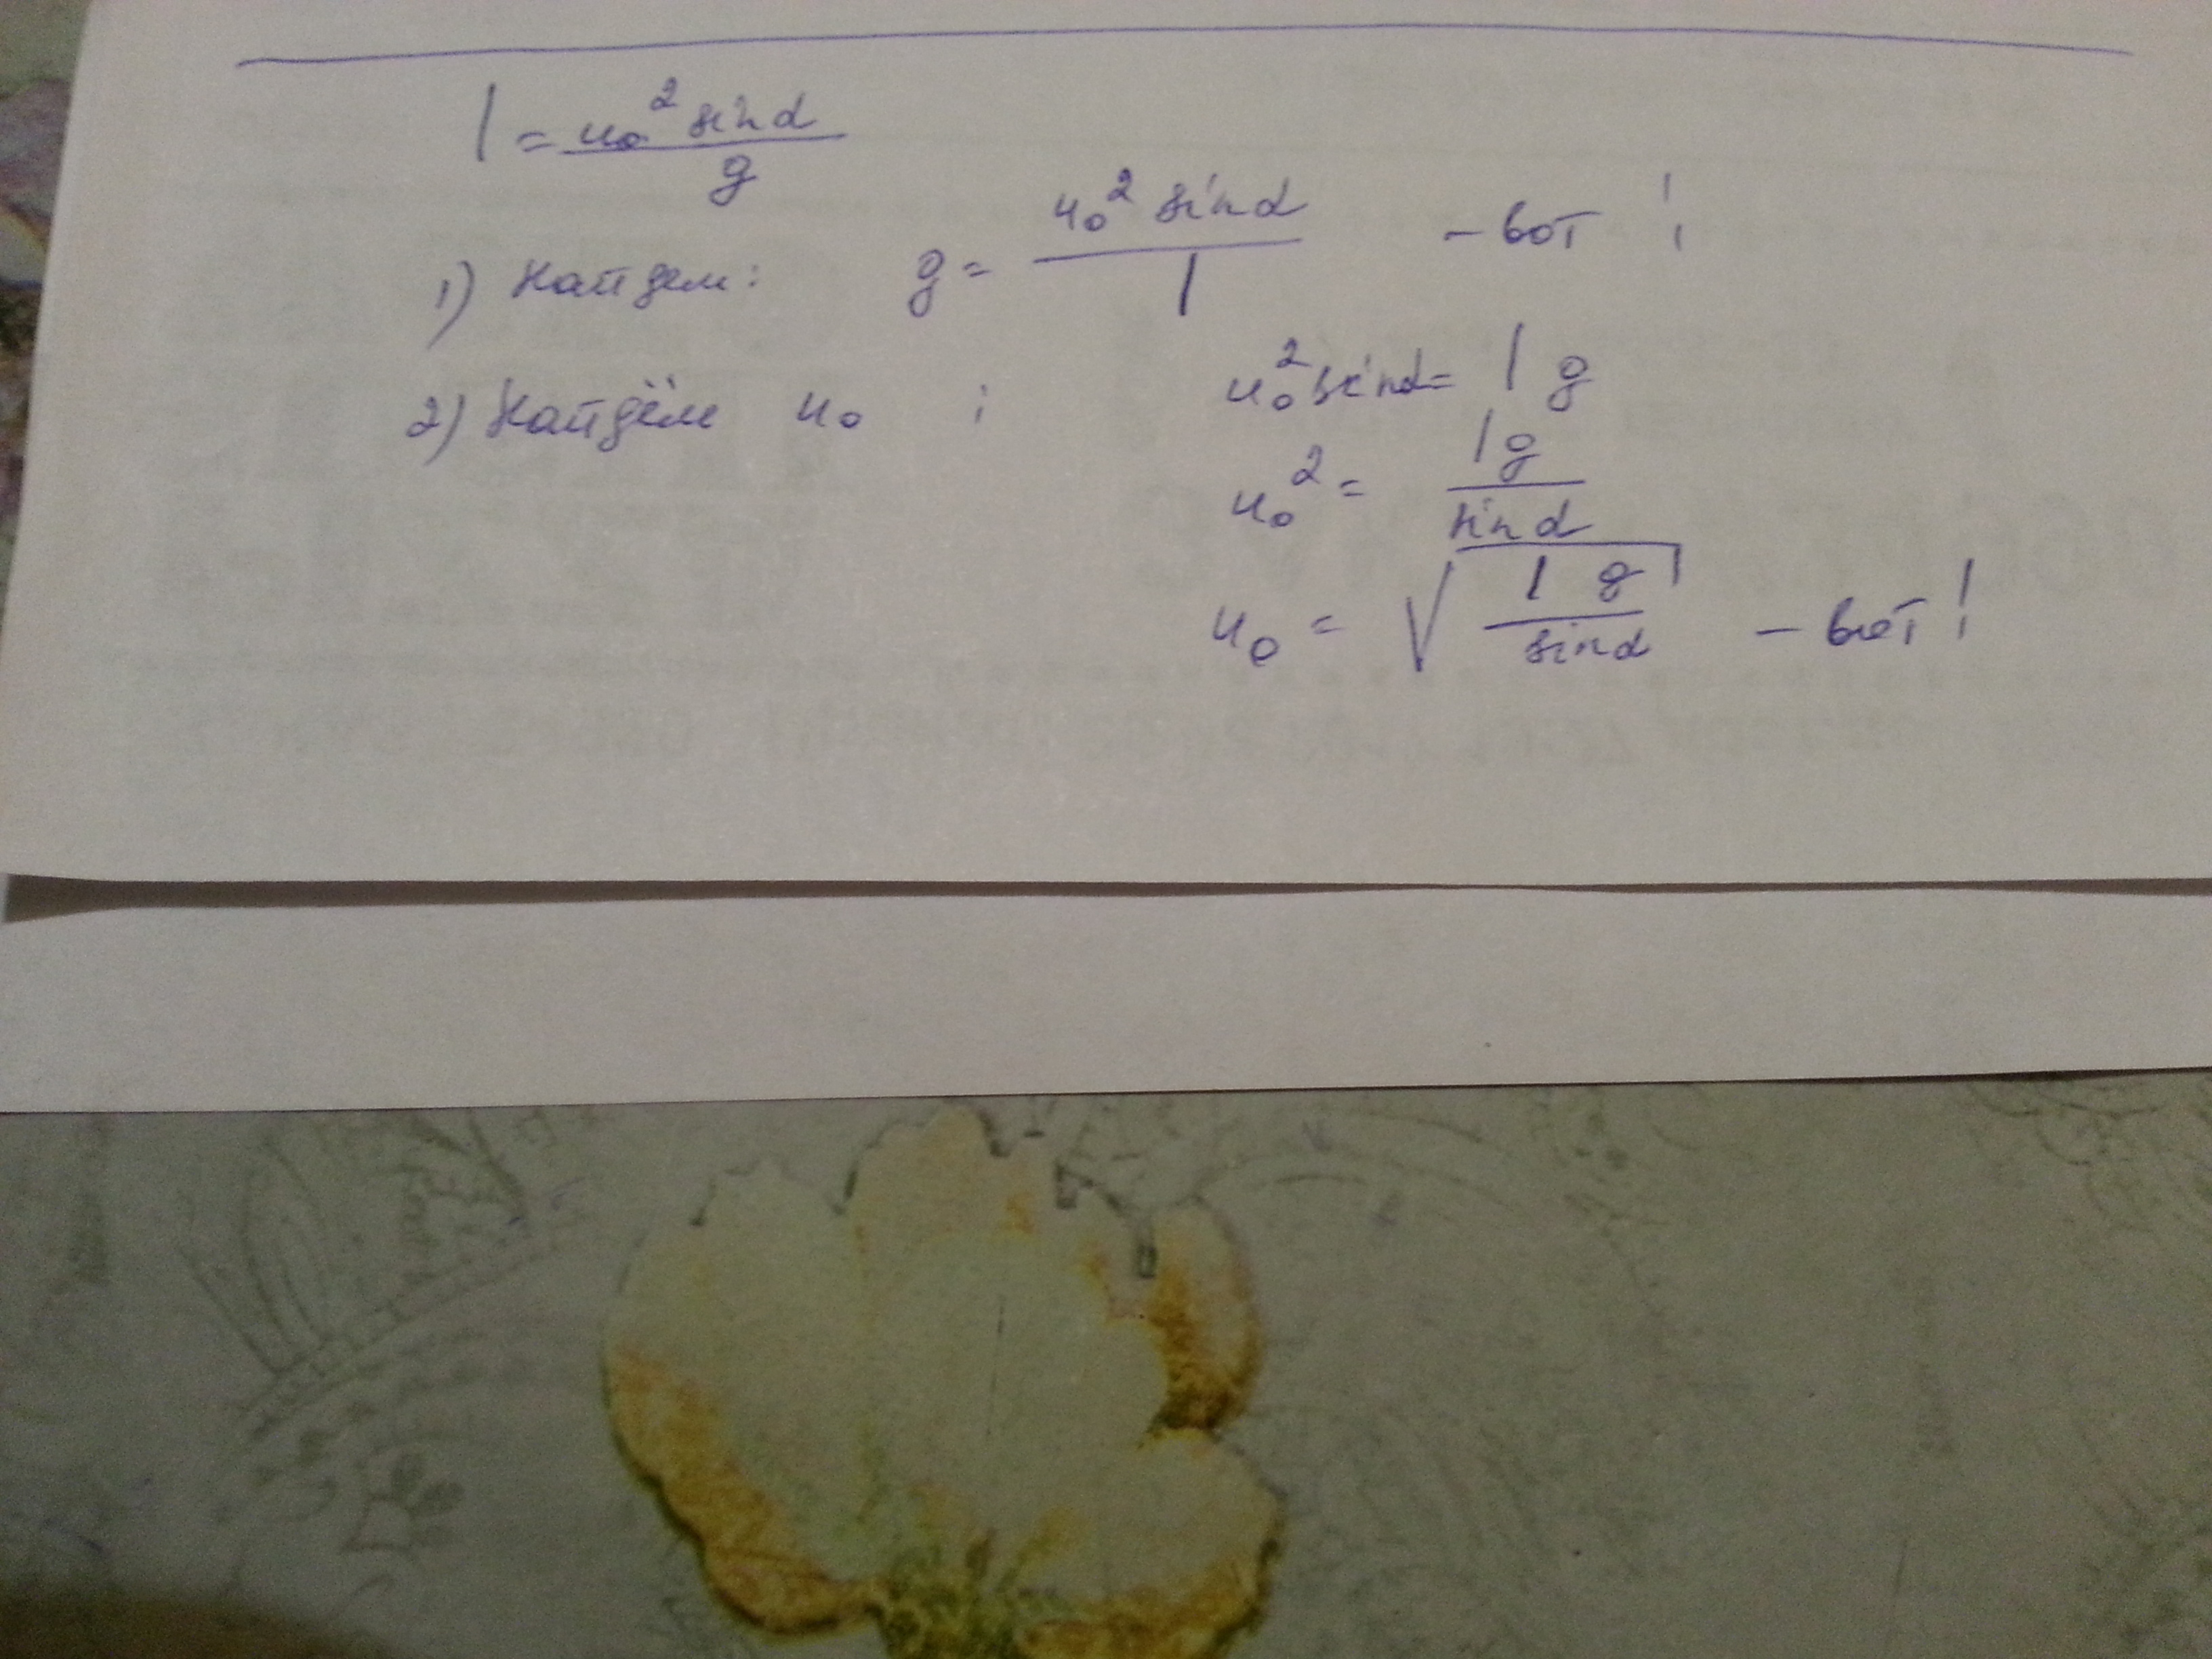 l = u₀² sin α / g
1) Найдем: g = u₀² sin α / l – вот!
2) Найдём u₀ : u₀² sin α = l g
u₀² = l g / sin α
u₀ = √(l g / sin α) – вот!